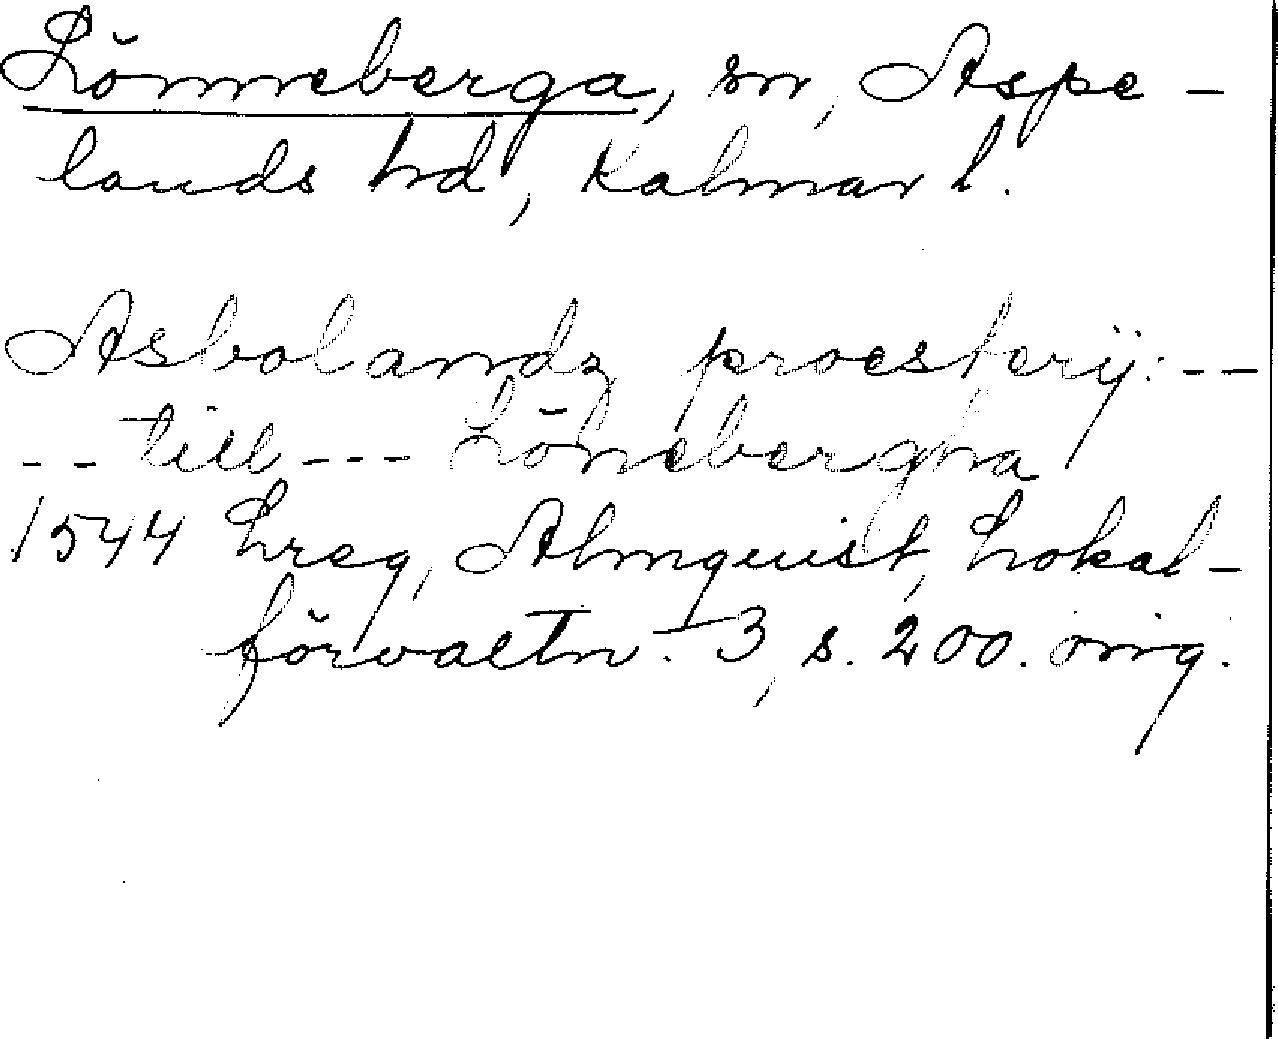 Lönneberga, sn, Aspe-
lands hd, Kalmar l.
Asbolandz proesterij: --
-- till --- Lönebergha
1544 Lreg, Almquist, Lokal-
förvaltn. 3, s. 200. orig.